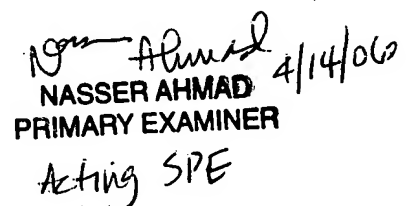 Nasser Ahmad 4/14/06
NASSER AHMAD
PRIMARY EXAMINER
Acting SPE